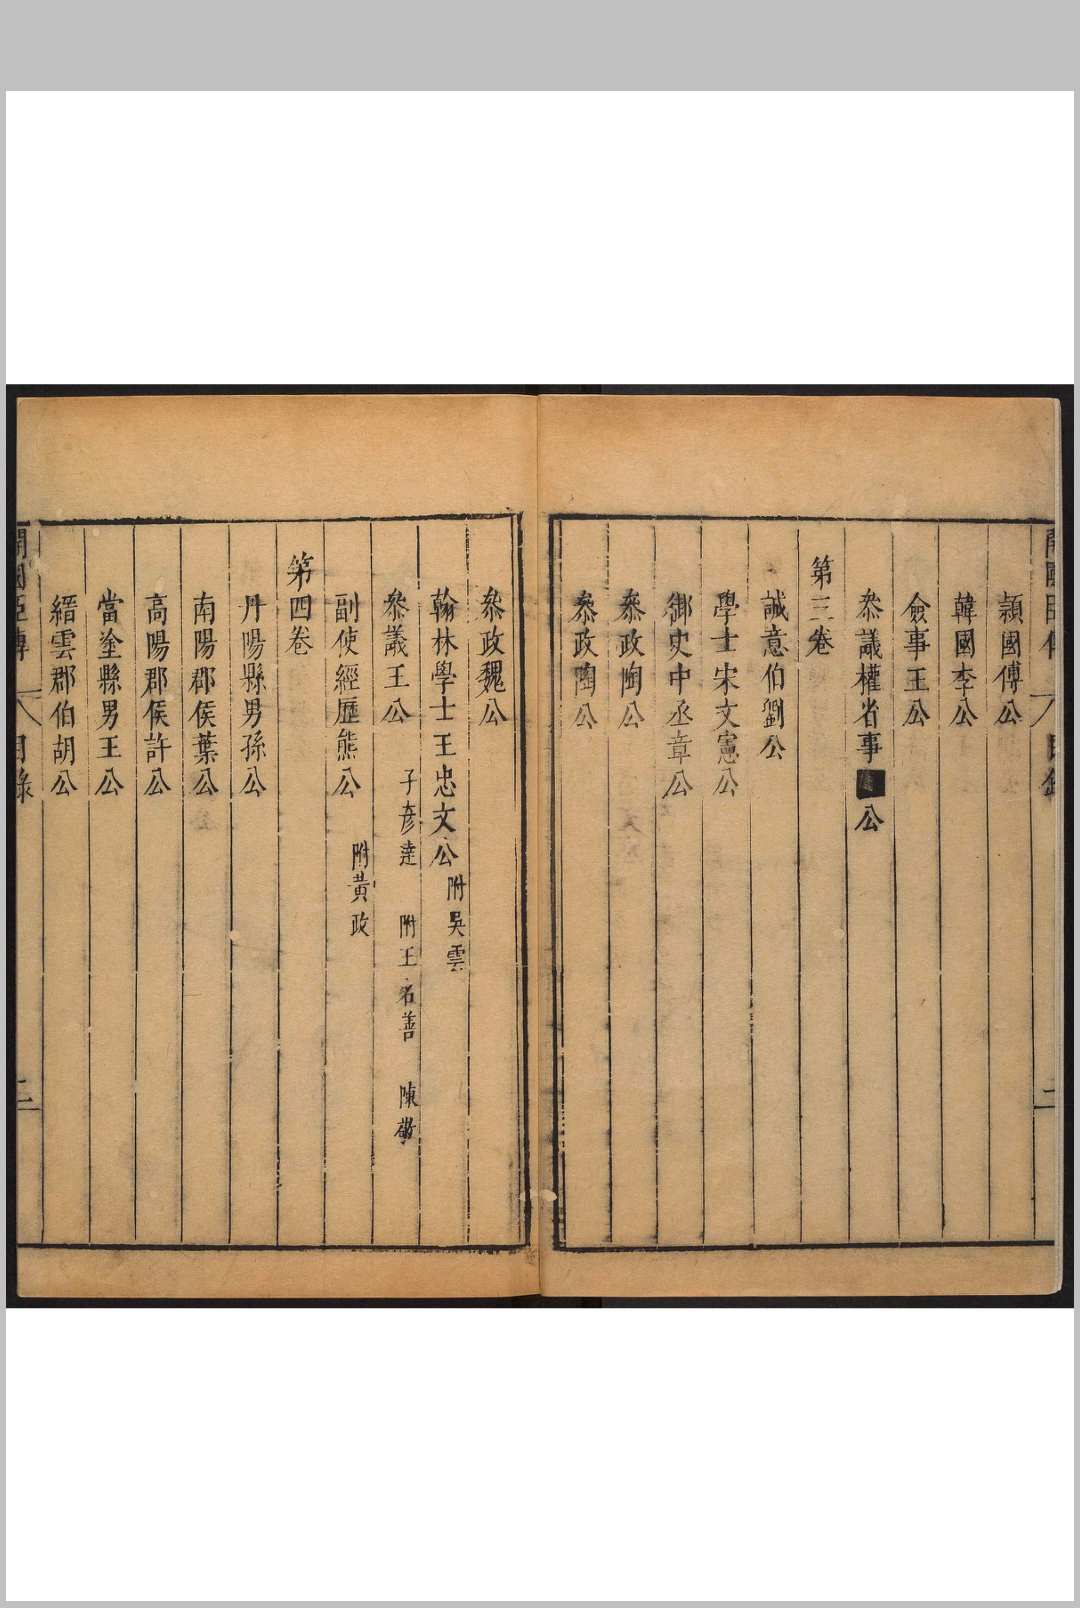 潁國傅公
韓國李公
僉事王公
叅議權省事
公
第三卷
誠意伯劉公
學士宋文憲公
御史中丞章公
叅政陶公
叅政陶公
叅政魏公
翰林學士王忠文公 附吳雲
叅議王公 子彥達 附王名善 陳敬
副使經歷熊公 附黃政
第四卷
丹陽縣男孫公
南陽郡侯葉公
高陽郡侯許公
當塗縣男王公
縉雲郡伯胡公
目錄